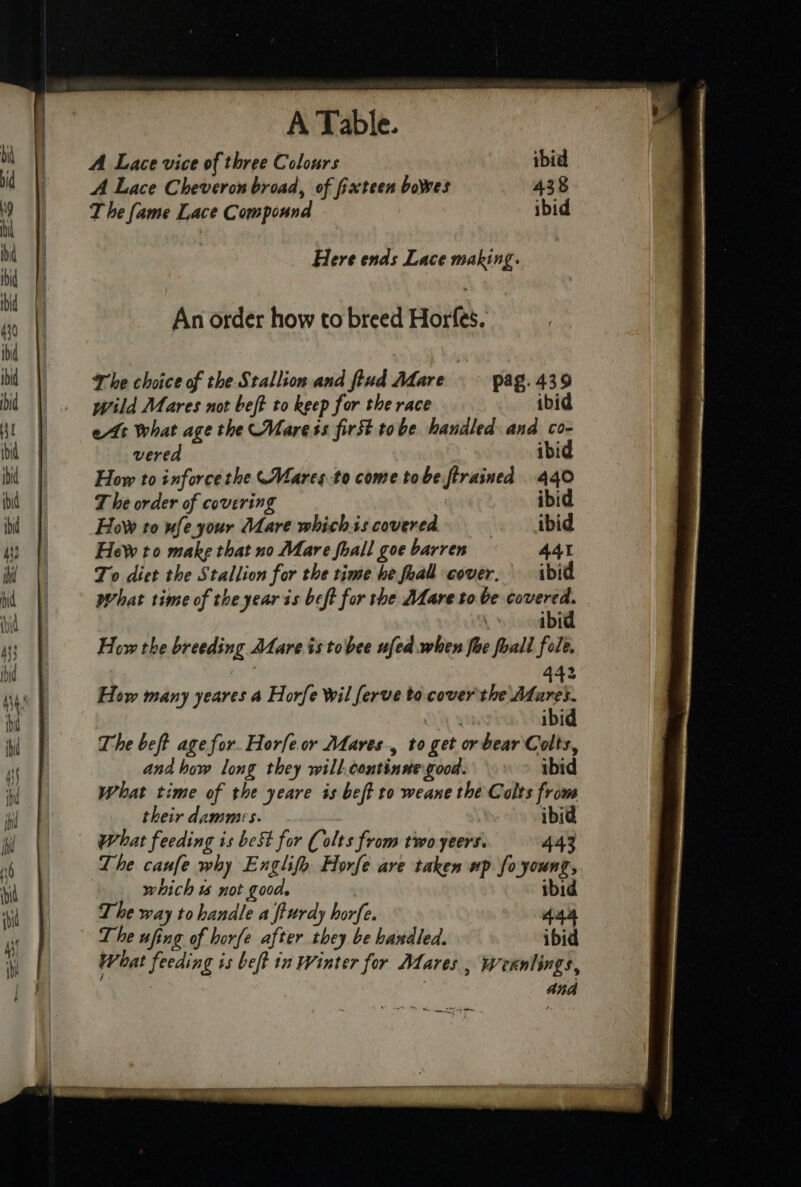 A Table.
A Lace vice of three Colours ibid
A Lace Cheveron broad, of ſixteen bowes 438
The ſame Lace Compound ibid
Here ends Lace making.
An order how to breed Horſes.
The choice of the Stallion and ſtud Mare pag. 439
Wild Mares not beſt to keep for the race ibid
At What age the Mare is firſt to be handled and co-
vered ibid
How to inforce the Mares to come to be ſtrained 440
The order of covering ibid
How to uſe your Mare which is covered ibid
How to make that no Mare ſhall goe barren 441
To diet the Stallion for the time he ſhall cover. ibid
What time of the year is beſt for the Mare to be covered.
ibid
How the breeding Mare is to bee uſed when ſhe ſhall fole.
442
How many yeares a Horſe Wil ſerve to cover the Mares.
ibid
The beſt age for Horſe or Mares, to get or bear Colts,
and how long they will continue good. ibid
What time of the yeare is beſt to weane the Colts from
their dammes. ibid
What feeding is beſt for Colts from two yeers. 443
The cauſe why Engliſh Horſe are taken up ſo young,
which is not good. ibid
The way to handle a ſturdy horſe. 444
The uſing of horſe after they be handled. ibid
What feeding is beſt in Winter for Mares, Weanlings,
and